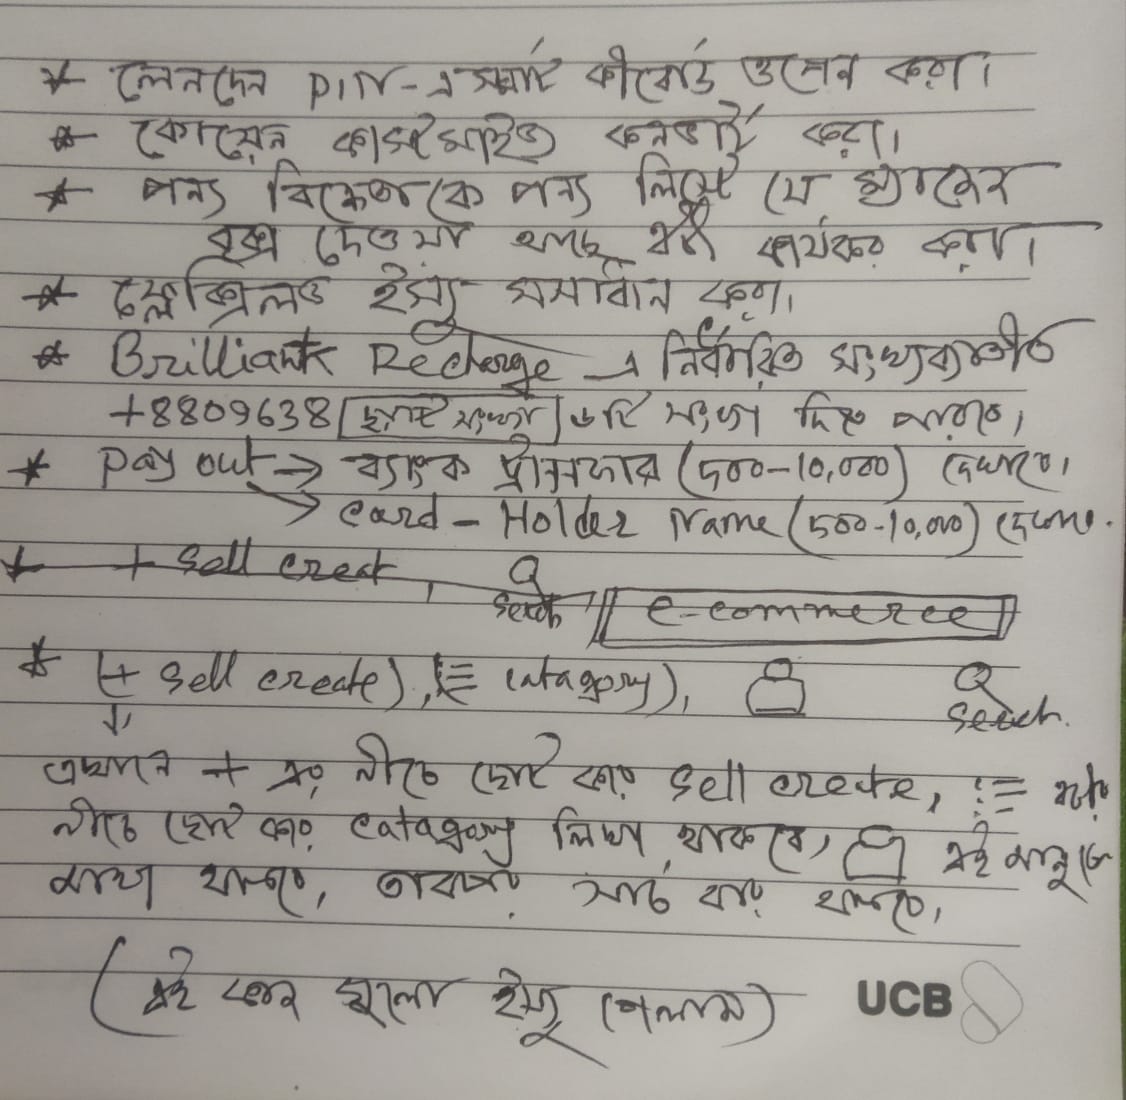 * লেনদেন PIN-এ স্মার্ট কীবোর্ড ওপেন করা।
* কোয়েন কাস্টমাইজ কনভার্ট করা।
* পন্য বিক্রেতাকে পন্য লিস্টে যে ম্যাসেজ
বক্স দেওয়া আছে কার্যকর করা।
* ফ্লেক্সিলড ইস্যু সমাধান করা।
* Brilliant Recharge এ নির্ধারিত সংখ্যাব্যতীত
+8809638 ছয়টি সংখ্যা ৬টি সংখ্যা দিতে পারবে,
* Pay out → ব্যাংক ট্রান্সফার (500-10,000) দেখাবে।
→ Card - Holder Name (500-10,000) দেখাবে.
+ Sell creat, Search e-commerce
* (+ Sell create), (catagory), Search.
এখানে + এর নীচে ছোট করে Sell create, এটার
নীচে ছোট করে catagory লিখা থাকবে, এই মানুষের
মাথা থাকবে, তারপর সার্চ বার থাকবে,
(এই কয়েক গুলো ইস্যু পেলাম) UCB